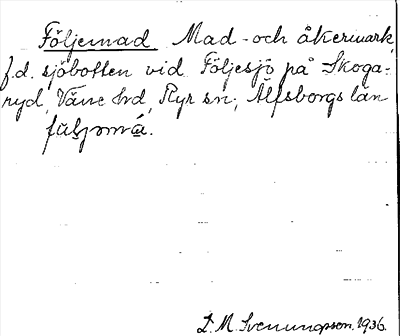 Följemad Mad- och åkermark,
f.d. sjöbotten vid Följesjö på Skoga-
ryd, Väne hrd, Ryr sn, Älfsborgs län
L. M. Svenungsson. 1936.